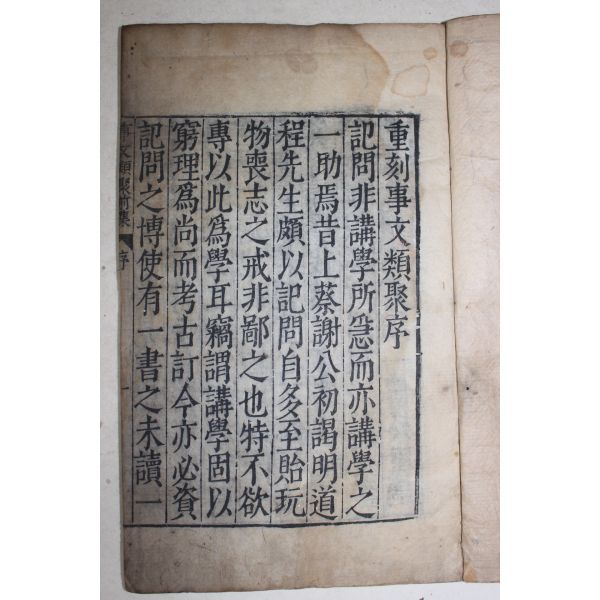 重刻事文類聚序
記問非講學所急而亦講學之
一助焉昔上蔡謝公初謁明道
程先生頗以記問自多至貽玩
物喪志之戒非鄙之也特不欲
專以此爲學耳竊謂講學固以
窮理爲尚而考古訂今亦必資
記問之博使有一書之未讀一
事文類聚前集 序